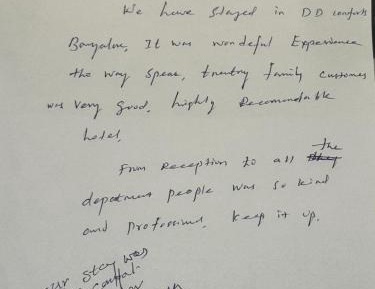 We have stayed in DD comforts
Bangalore, It was wondeful Experience
the way speak, treating family customer
was very good, highly Recomendable
hotel,
From Reception to all the
department people was so kind
and Professional, keep it up.
stay was